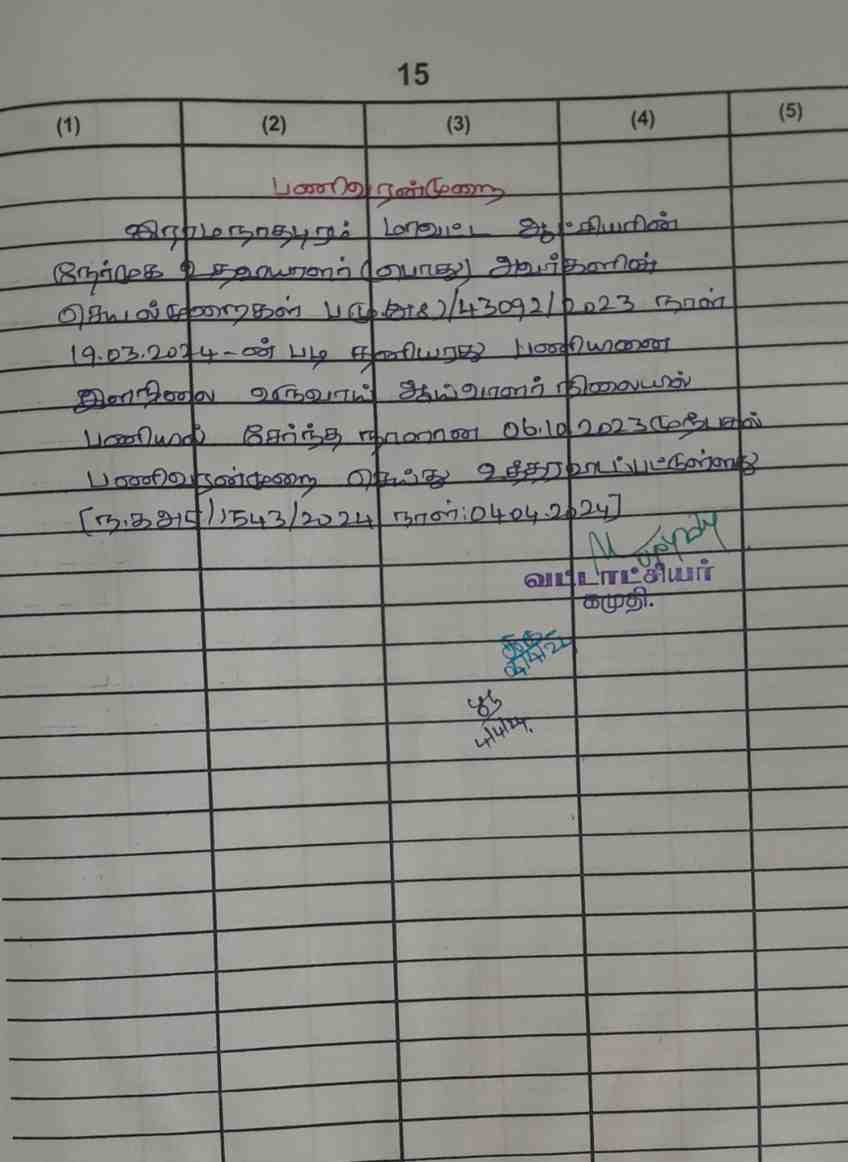 15
(1) (2) (3) (4) (5)
பணிவரன்முறை
இராமநாதபுரம் மாவட்ட ஆட்சியரின்
நேர்முக உதவியாளர் (பொது) அவர்களின்
செயல்முறைகள் 43092/2023 நாள்
19.03.2024-ன் படி பணியாளை
இளநிலை வருவாய் ஆய்வாளர் நிலையில்
பணியில் சேர்ந்த நாளான 06.10.2023 முதல்
பணிவரன்முறை செய்து உத்தரவிடப்பட்டுள்ளது
[ந.க அ5/1543/2024 நாள்:04.04.2024]
வட்டாட்சியர்
கமுதி.
4/4/24.